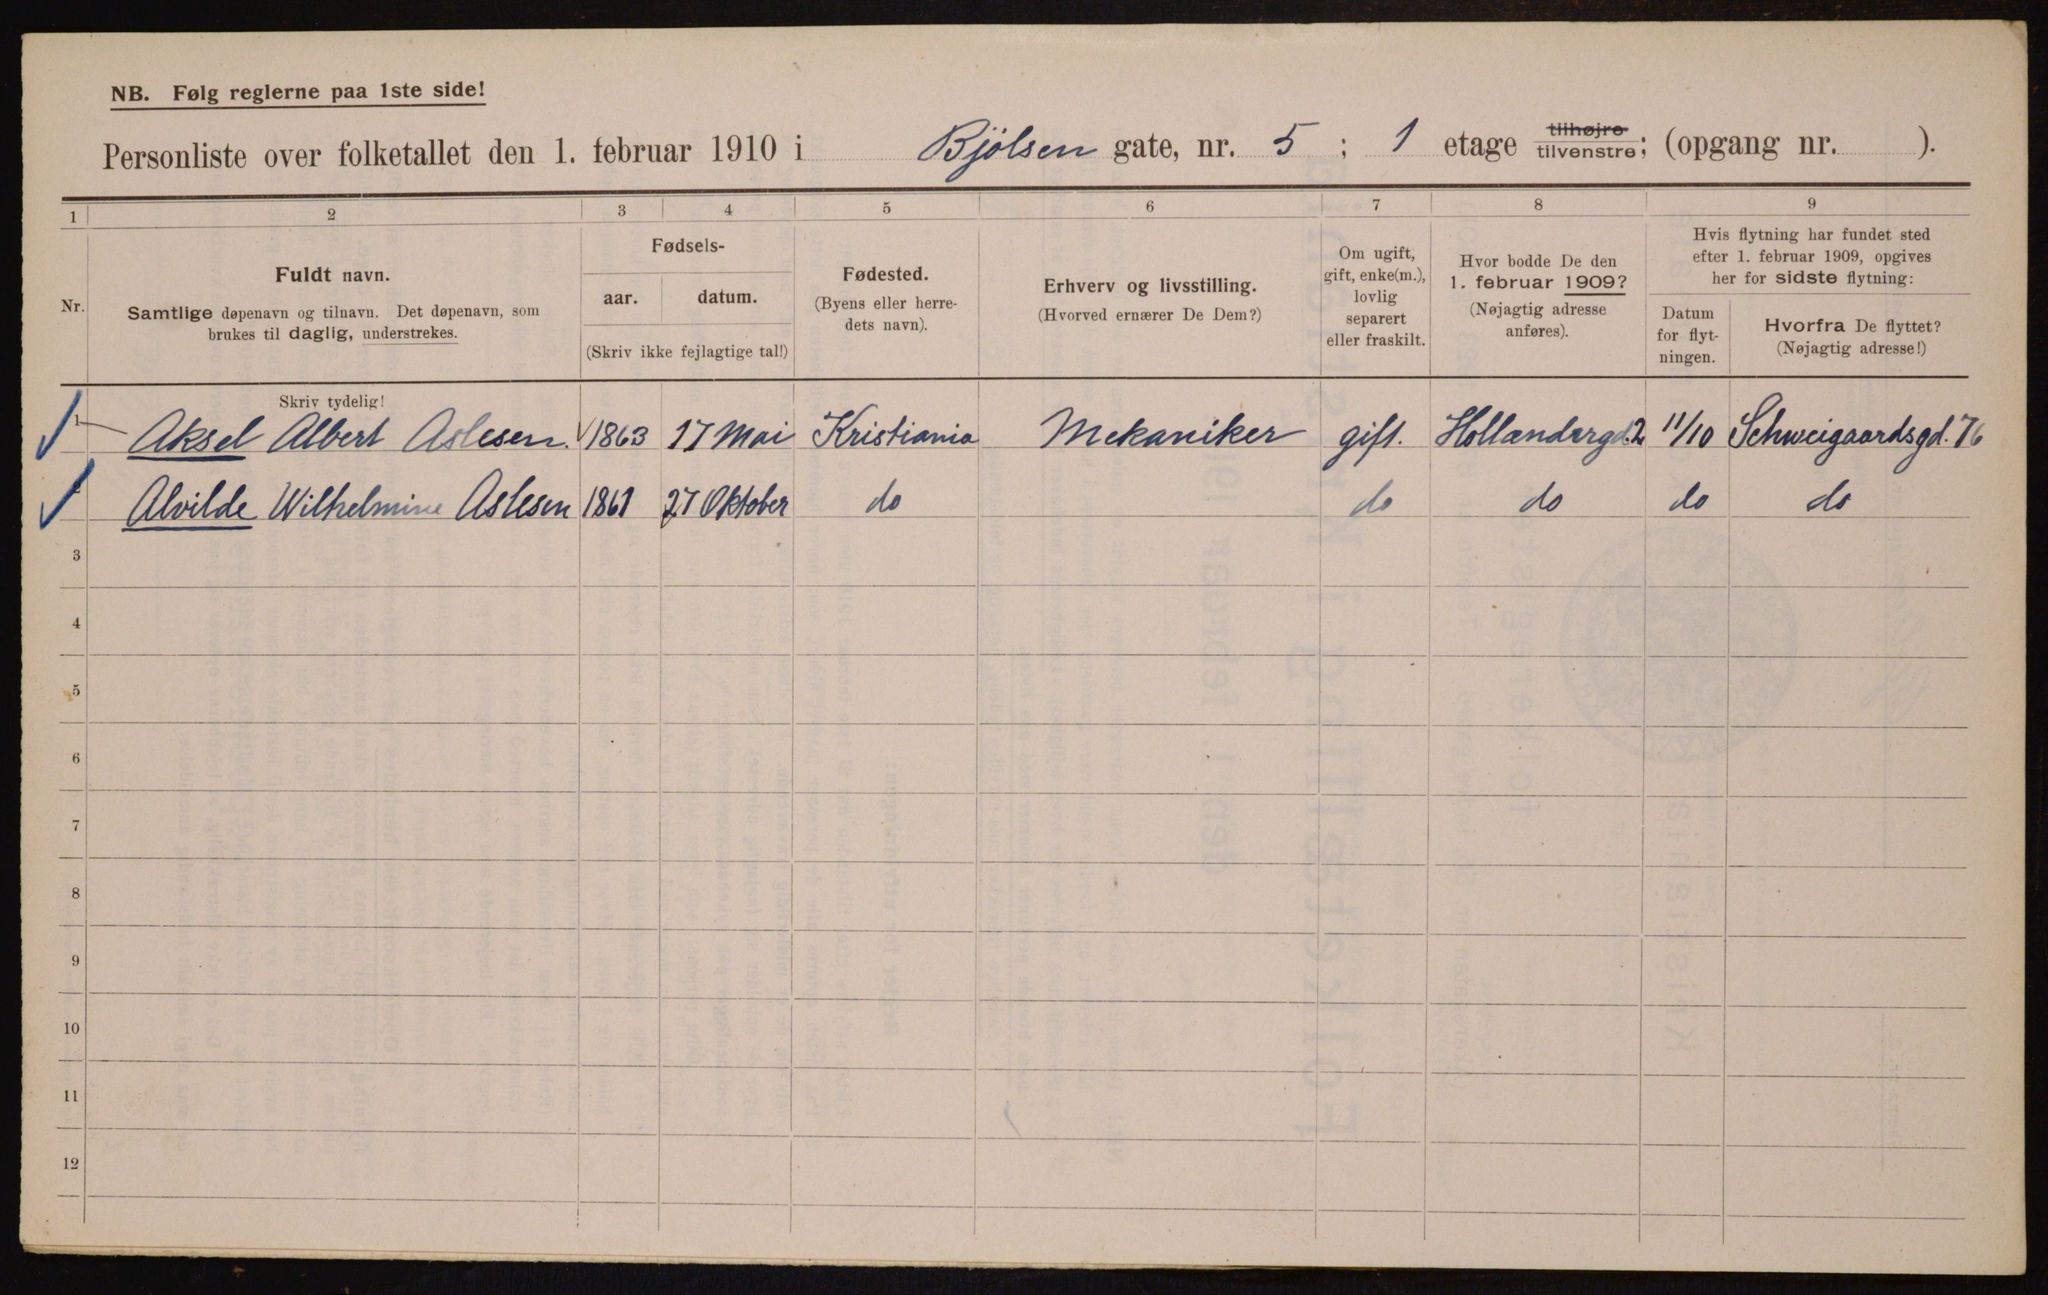 NB. Følg reglerne paa 1ste side!
Personliste over folketallet den 1. februar 1910 i Bjölsen gate, nr. 5 ; 1 etage tilhøjre tilvenstre; (opgang nr. ).
1 2 3 4 5 6 7 8 9
Nr.
Fuldt navn.
Samtlige døpenavn og tilnavn. Det døpenavn, som
brukes til daglig, understrekes.
Skriv tydelig!
Fødsels-
aar. datum.
(Skriv ikke fejlagtige tal!)
Fødested.
(Byens eller herre-
dets navn).
Erhverv og livsstilling.
(Hvorved ernærer De Dem?)
Om ugift,
gift, enke(m.),
lovlig
separert
eller fraskilt.
Hvor bodde De den
1. februar 1909?
(Nøjagtig adresse
anføres).
Hvis flytning har fundet sted
efter 1. februar 1909, opgives
her for sidste flytning:
Datum
for flyt-
ningen.
Hvorfra De flyttet?
(Nøjagtig adresse!)
1 Aksel Albert Aslesen. 1863 17 Mai Kristiania Mekaniker gift. Hollendergd. 2 11/10 Schweigaardsgd. 76
Alvilde Wilhelmine Aslesen 1861 27 Oktober do do do do do
3
4
5
6
7
8
9
10
11
12